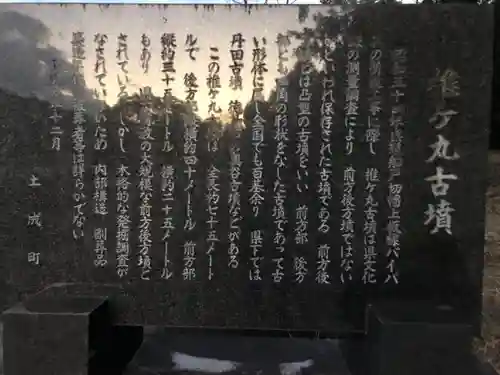 椎ケ丸古墳
昭和三十 船戸切幡上板線バイパ
の新設工事に際し 椎ケ丸古墳は県文化
の調査により 前方後方墳ではない
といわれ保存された古墳である 前方後
とは凸型の古墳をいい 前方部 後方
とも 園の形状をなした古墳であって古
い形体に属し全国でも百基余り 県下では
丹田古墳 奥谷古墳などがある
この椎ケ丸古 は 全長約七十五メート
ルで 後方 横約四十メートル 前方部
縦約三十五 ートル 横約二十五メートル
もあり 県 級の大規模な前方後方墳と
されている しかし 本格的な発掘調査が
なされていないため 内部構造 副葬品
被葬者等は詳らかでない
十二月
土成町